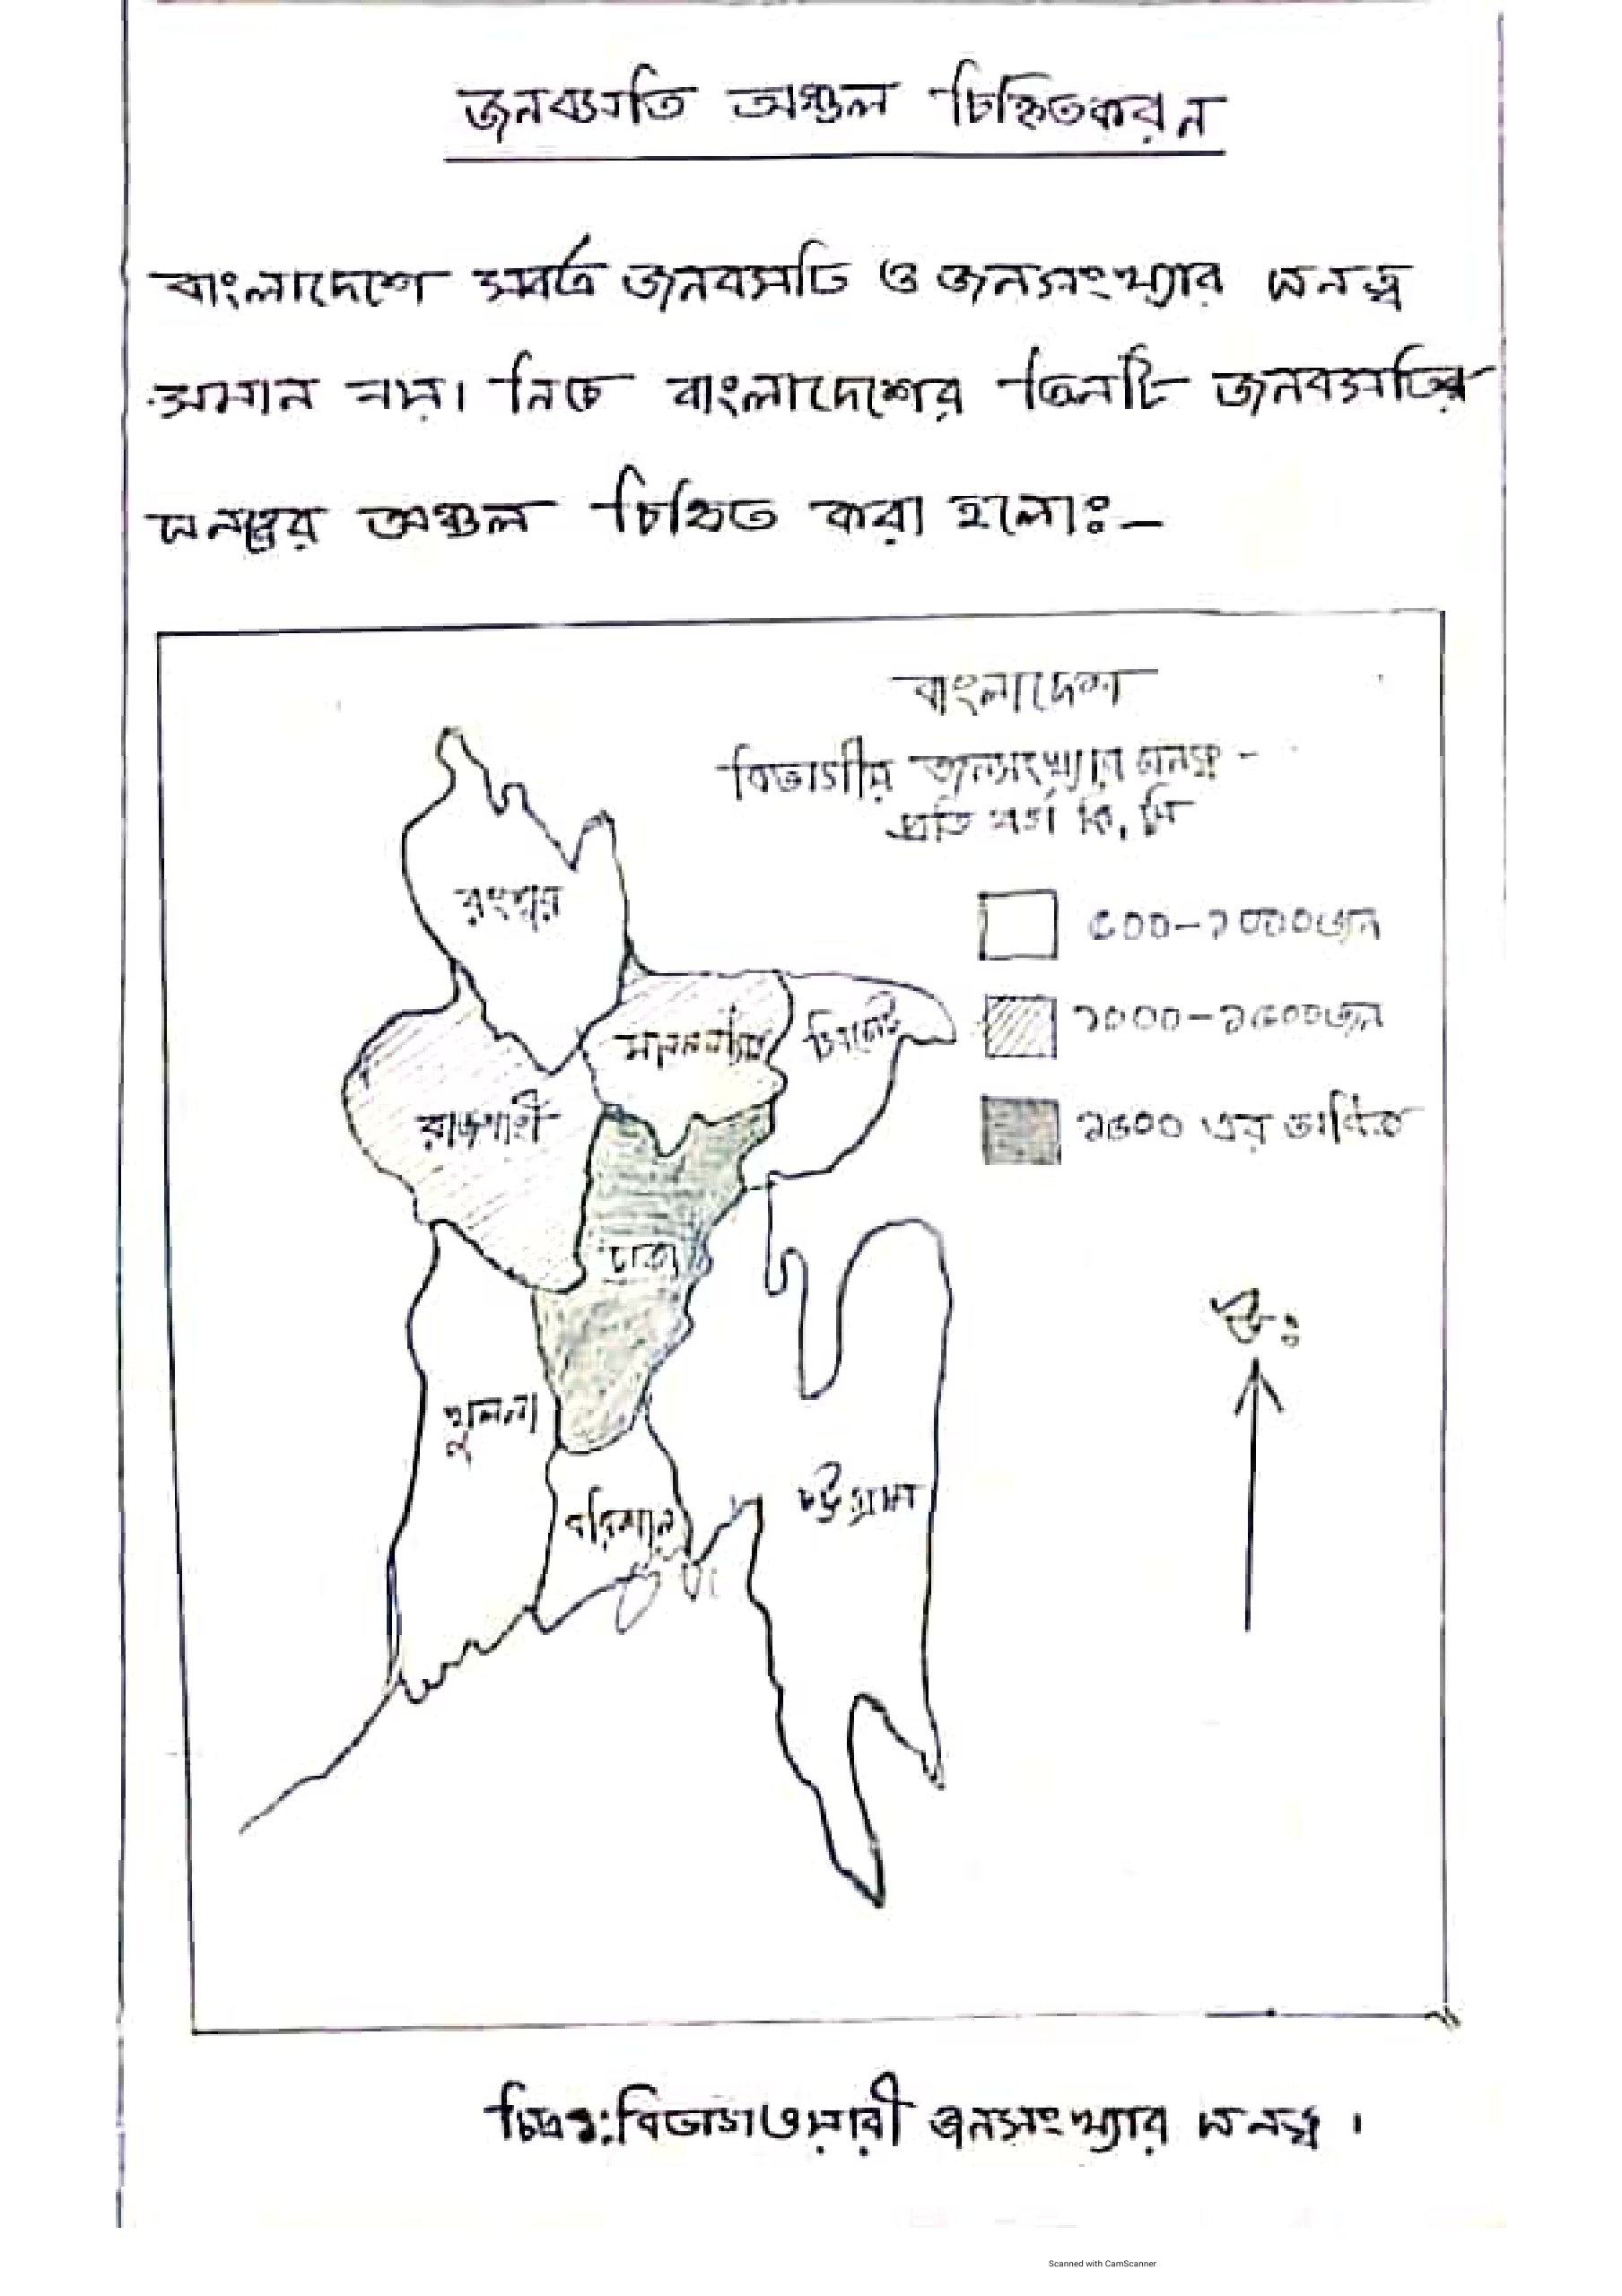 জনবসতি অঞ্চল চিহ্নিতকরন
বাংলাদেশে সবর্ত্র জনবসতি ও জনসংখ্যার ঘনত্ব
সমান নয়। নিচে বাংলাদেশের তিনটি জনবসতির
ঘনত্বের অঞ্চল চিহ্নিত করা হলোঃ-
বাংলাদেশ
বিভাগীয় জনসংখ্যার ঘনত্ব -
প্রতি বর্গ কি, মি
রংপুর
৫০০-১০০০জন
ময়মনসিংহ
সিলেট
১০০০-১৫০০জন
রাজশাহী
১৫০০ এর অধিক
ঢাকা
উঃ
খুলনা
চট্টগ্রাম
বরিশাল
চিত্রঃ:বিভাগওয়ারী জনসংখ্যার ঘনত্ব ।
Scanned with CamScanner